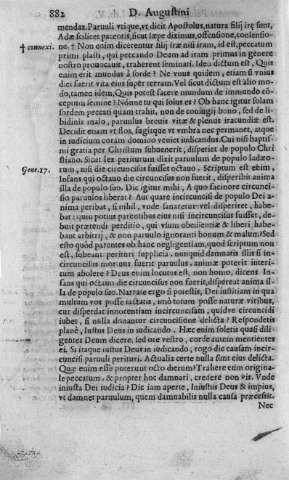 882 D. Augustini
mendaz. Paruuli vtique, vt dicit Apostolus, natura filij iræ sunt,
Adæ scilicet parentis, sicut sæpe diximus, offensione, consensio-
† connexi. ne. † Non enim dicerentur filij iræ nisi iram, id est, peccatum
primi plasti, qui peccando Deum ad iram primus in genere
nostro prouocauit, traherent seminari. Ideo dictum est, Quis
enim erit mundus à sorde? Ne vous quidem, etiam si vnius
diei fuerit vita eius super terram. Vel sicut dictum est alio mo-
do, tamen idem, Quis potest facere mundum de immundo cõ-
ceptum semine? Nonne tu qui solus es? Ob hanc igitur solam
sordem peccati quam trahit, non de coniugij bono, sed de li-
bidinis malo, paruulus breuis vitæ & plenus iracundiæ est.
Decidit enim vt flos, fugitque vt vmbra nec permanet, atque
in iudicium coram domino venire iudicandus. Cui nisi baptis-
mi gratia per Christum subuenerit, disperiet de populo Chri
stiano. Sicut lex periturum dixit paruulum de populo Iudæo-
Gene. 17. rum, nisi die circuncisus fuisset octauo. Scriptum est enim,
Infans qui octauo die circuncisus non fuerit, disperibit anima
illa de populo suo. Dic igitur mihi, A quo facinore circunci-
sio paruulos liberat? Aut quare incircuncisi de populo Dei a-
nima peribat, si nihil, vnde interiret apud se retineret, habe-
bat: quo potius parentibus eius nisi incircuncisus fuisset, de-
buit prætendi perditio, qui vium obedientiæ & liberi habe-
bant arbitrij, & non paruulo ignoranti bonum & malum? Sed
esto quod parentes ob hanc negligentiam, quod scriptum non
est, subeant perituri supplicia, nunquid damnatis illis si in-
circuncisus mortuus fuerit paruulus, animæ poterit interi-
tum abolere? Deus enim locutus est, non homo, dicens In-
fans qui octauo die circuncisus non fuerit, disperiet anima il-
la de populo suo. Narrate ergo si potestis, Dei iustitiam in qua
multum vos posse iactatis, imò totam posse naturæ viribus,
cur disperdat innocentiam incircuncisam, quidve circuncidi
iubet, si nulla donantur circuncisione delicta? Respondetis
planè, Iustus Deus in iudicando. Hæc enim soletis quasi dili-
gentes Deum dicere, sed ore vestro, corde autem mentientes
ei. Si itaque iustus Deus in iudicando, rogo dic causam incir-
cuncisi paruuli perituri. Actualia certe nulla sunt eius delicta.
Quæ enim esse poterunt octo dierum? Trahere enim origina-
le peccatum, & propter hoc damnari, credere non vis. Vnde
iniusta Dei iudicia? Dic iam aperte, Iniustus Deus & impius,
vt damnet paruulum, quem damnabilis nulla causa præcessit.
Nec